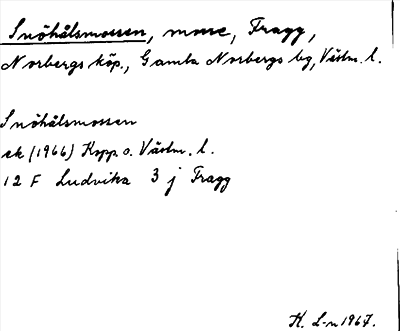 Snöhålsmossen, mosse, Fragg,
Norbergs köp., Gamla Norbergs bg, Västm. l.
Snöhålsmossen
ek (1966) Kopp. o. Västm. l.
12 F Ludvika 3 j Fragg
K. L-n 1967.